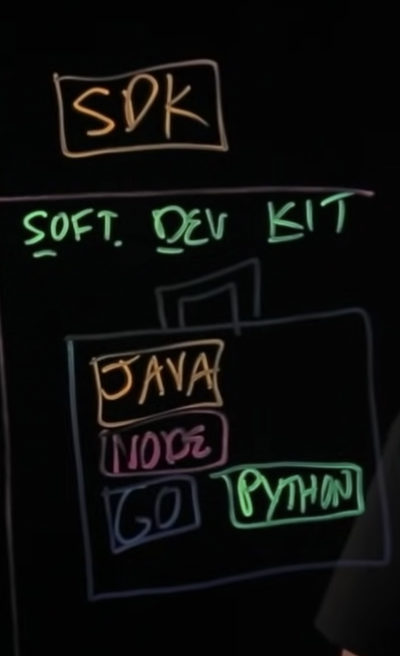 SDK
SOFT. DEV KIT
JAVA
NODE
GO PYTHON